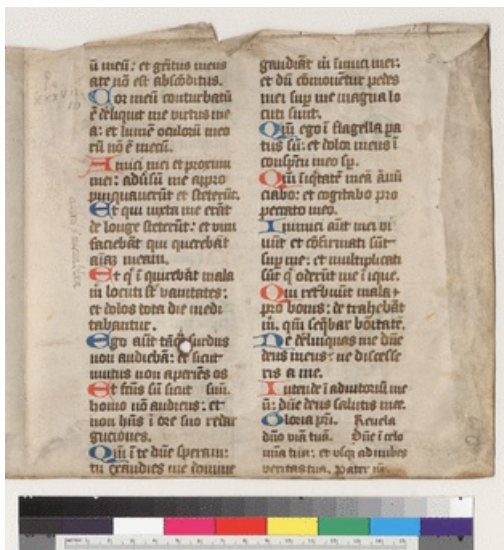 ū meū: et gēitus meus
a te nō est absc̄oditus.
Cor meū conturbatū
ē deliquit me virtus me
a: et lumē oculorū meo
rū nō ē mecū.
Amici mei et proximi
mei: adūsū me appro
pinquaverūt et steterūt.
Et qui iuxta me erāt
de longe steterūt: et vim
faciebāt qui querebāt
aīam meam.
Et q̄ īquirebāt mala
m̄ locuti st̄ vanitates:
et dolos tota die medi
tabantur.
Ego aūt tāq̄ surdus
non audiebā: et sicut
mutus non aperiēs os
Et fc̄us sū sicut
homo nō audiens: et
non hn̄s ī ore suo redar
guciones.
Qm̄ ī te dūe speraui:
tu exaudies me domine
gaudiāt m̄ inimici mei:
et dū cōmoventur pedes
mei sup me magna lo
cuti sunt.
Qm̄ ego ī flagella pa
tus sū: et dolor meus ī
conspectu meo sp̄.
Qm̄ īiq̄tatē meā ānū
ciabo: et cogitabo pro
peccato meo.
Inimici aūt mei vi
uūt et cōfirmati sūt
sup me: et multiplicati
sūt q̄ oderūt me īique.
Qui retˀbuūt mala
pro bonis: detrahebāt
m̄. qm̄ seq̄bar boītatē.
Ne delinquas me dūe
deus meus: ne discesse
ris a me.
Intende ī adiutoriū me
ū: dūe deus salutis mee.
Gloria pri. Revela
dūo viā tuā. Dūe ī celo
mīa tua: et usq̄ ad nubes
veritas tua. Pater nr̄.